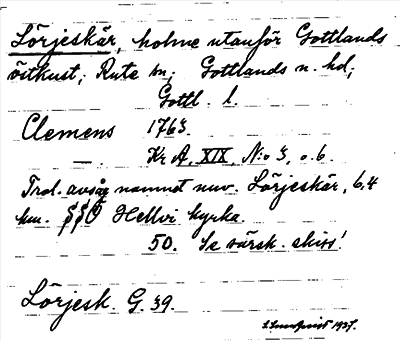 Lörjeskär, holme utanför Gottlands
östkust, Rute sn; Gottlands n. hd;
Gottl. l.
Clemens 1763.
— . Kr A, XIX, N:o 3, o. 6.
Trol. avsåg namnet nuv. Lörjeskär, 6,4
km. SSO Hellvi kyrka.
50. Se särsk. skiss!
Lörjesk. G. 39.
1937.